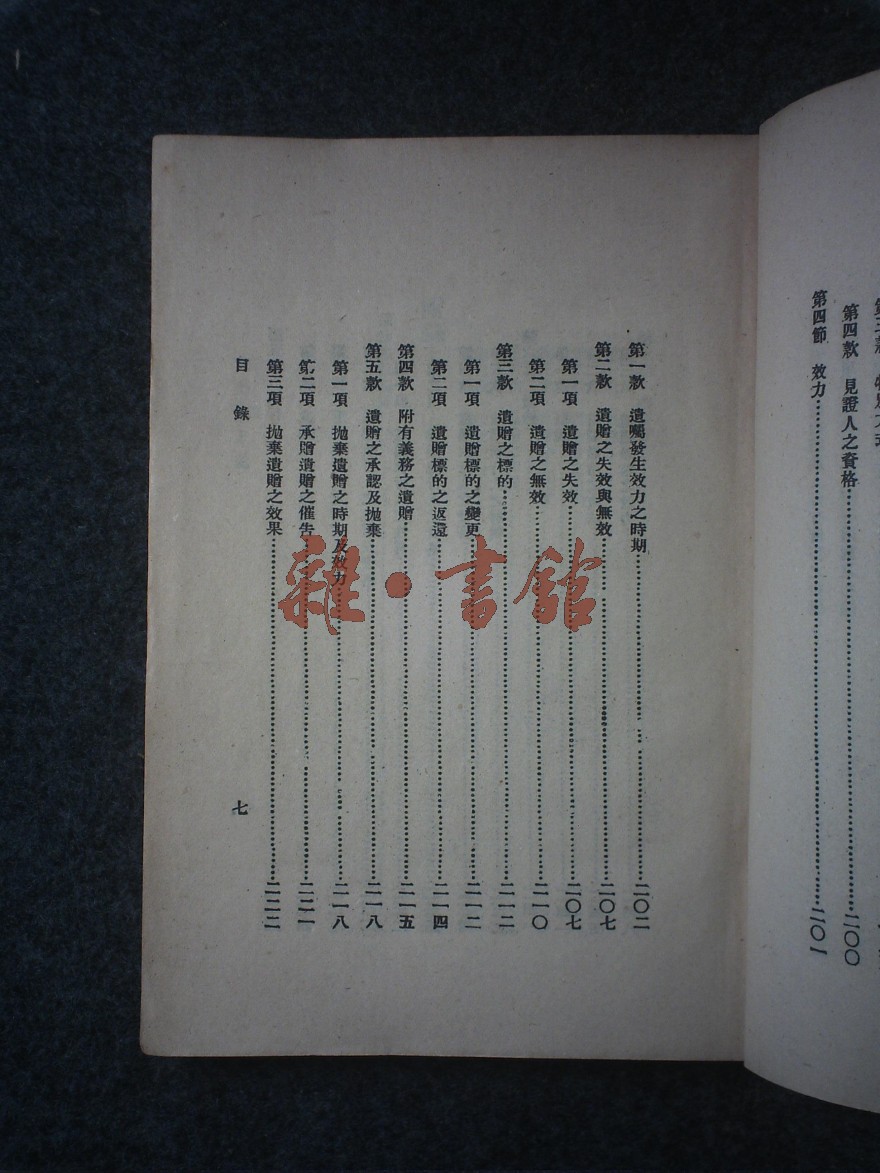 第四款　見證人之資格……二〇〇
第四節　效力……二〇一
第一款　遺囑發生效力之時期……二〇二
第二款　遺贈之失效與無效……二〇七
第一項　遺贈之失效……二〇七
第二項　遺贈之無效……二一〇
第三款　遺贈之標的……二一二
第一項　遺贈標的之變更……二一二
第二項　遺贈標的之返還……二一四
第四款　附有義務之遺贈……二一五
第五款　遺贈之承認及拋棄……二一八
第一項　拋棄遺贈之時期及效力……二一八
第二項　承贈遺贈之催告……二二一
第三項　拋棄遺贈之效果……二二二
目錄
七
雜·書館